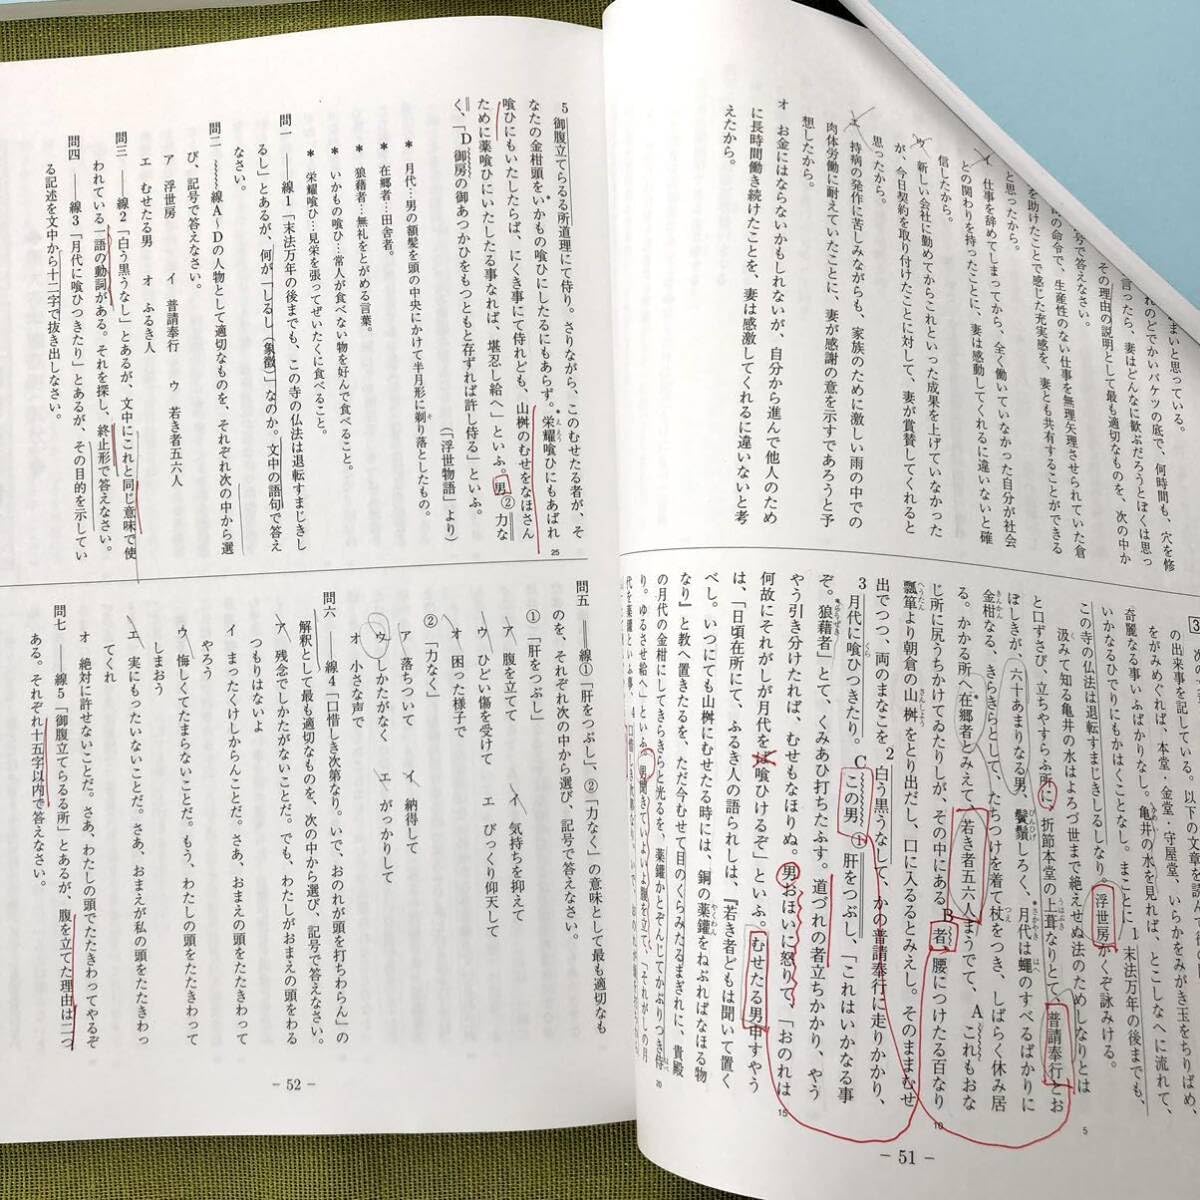 まいと思っている。
れのどでかいバケツの底で、何時間も、穴を修
言ったら、妻はどんなに歓ぶだろうとぼくは思っ
その理由の説明として最も適切なものを、次の中か
号で答えなさい。
の命令で、生産性のない仕事を無理矢理させられていた倉
を助けたことで感じた充実感を、妻とも共有することができる
と思ったから。
イ 仕事を辞めてしまってから、全く働いていなかった自分が社会
との関わりを持ったことに、妻は感動してくれるに違いないと確
信したから。
ウ 新しい会社に勤めてからこれといった成果を上げていなかった
が、今日契約を取り付けたことに対して、妻が賞賛してくれると
思ったから。
エ 持病の発作に苦しみながらも、家族のために激しい雨の中での
肉体労働に耐えていたことに、妻が感謝の意を示すであろうと予
想したから。
オ お金にはならないかもしれないが、自分から進んで他人のため
に長時間働き続けたことを、妻は感激してくれるに違いないと考
えたから。
3 次の
の出来事を記している。
以下の文章を読んで
をがみめぐれば、本堂・金堂・守屋堂、いらかをみがき玉をちりばめ、
奇麗なる事いふばかりなし。亀井の水を見れば、とこしなへに流れて、
いかなるひでりにもかはくことなし。まことに1末法万年の後までも、
この寺の仏法は退転すまじきしるしなり。浮世房かくぞ詠みける。
汲みて知る亀井の水はよろづ世まで絶えせぬ法のためしなりとは
と口ずさび、立ちやすらふ所に、折節本堂の上葺なりとて、普請奉行とお
ぼしきが、六十あまりなる男、鬢鬚しろく、月代は蠅のすべるばかりに
金柑なる、きらきらとして、たちつけを着て杖をつき、しばらく休み居
る。かかる所へ在郷者とみえて、若き者五六人まうでて、Aこれもおな
じ所に尻うちかけてゐたりしが、その中にあるB者、腰につけたる百なり
瓢箪より朝倉の山椒をとり出だし、口に入るるとみえし。そのままむせ
出でつつ、両のまなこを2白う黒うなして、かの普請奉行に走りかかり、
3月代に喰ひつきたり。Cこの男①肝をつぶし、「これはいかなる事
ぞ。狼藉者」とて、くみあひ打ちたふす。道づれの者立ちかかり、やう
やう引き分けたれば、むせもなほりぬ。男おほいに怒りて、「おのれは
何故にそれがしが月代をば喰ひけるぞ」といふ。むせたる男申すやう
は、「日頃在所にて、ふるき人の語られしは、『若き者どもは聞いて置く
べし。いつにても山椒にむせたる時には、銅の薬鑵をねぶればなほる物
なり』と教へ置きたるを、ただ今むせて目のくらみたるまぎれに、貴殿
の月代の金柑にしてきらきらと光るを、薬鑵かとぞんじてかぶりつき侍
り。ゆるさせ給へ」といふ。男聞きていよいよ腹を立て、「それがしの月
5
10
15
20
- 51 -
5御腹立てらるる所道理にて侍り。さりながら、このむせたる者が、そ
なたの金柑頭をいかもの喰ひにしたるにもあらず。栄耀喰ひにもあばれ
喰ひにもいたしたらば、にくき事にて侍れども、山椒のむせをなほさん
ために薬喰ひにいたしたる事なれば、堪忍し給へ」といふ。男②力な
く、「D御房の御あつかひをもつともと存ずれば許し侍る」といふ。
(「浮世物語」より)
25
* 月代…男の額髪を頭の中央にかけて半月形に剃り落としたもの。
* 在郷者…田舎者。
* 狼藉者…無礼をとがめる言葉。
* いかもの喰ひ…常人が食べない物を好んで食べること。
* 栄耀喰ひ…見栄を張ってぜいたくに食べること。
問一 ――線1「末法万年の後までも、この寺の仏法は退転すまじきし
るし」とあるが、何が「しるし(象徴)」なのか。文中の語句で答え
なさい。
問二 ~~~線A~Dの人物として適切なものを、それぞれ次の中から選
び、記号で答えなさい。
ア 浮世房 イ 普請奉行 ウ 若き者五六人
エ むせたる男 オ ふるき人
問三 ――線2「白う黒うなし」とあるが、文中にこれと同じ意味で使
われている一語の動詞がある。それを探し、終止形で答えなさい。
問四 ――線3「月代に喰ひつきたり」とあるが、その目的を示してい
る記述を文中から十二字で抜き出しなさい。
問五 ==線①「肝をつぶし」、②「力なく」の意味として最も適切なも
のを、それぞれ次の中から選び、記号で答えなさい。
①「肝をつぶし」
ア 腹を立てて イ 気持ちを抑えて
ウ ひどい傷を受けて エ びっくり仰天して
オ 困った様子で
②「力なく」
ア 落ちついて イ 納得して
ウ しかたがなく エ がっかりして
オ 小さな声で
問六 ――線4「口惜しき次第なり。いで、おのれが頭を打ちわらん」の
解釈として最も適切なものを、次の中から選び、記号で答えなさい。
ア 残念でしかたがないことだ。でも、わたしがおまえの頭をわる
つもりはないよ
イ まったくけしからんことだ。さあ、おまえの頭をたたきわって
やろう
ウ 悔しくてたまらないことだ。もう、わたしの頭をたたきわって
しまおう
エ 実にもったいないことだ。さあ、おまえが私の頭をたたきわっ
てくれ
オ 絶対に許せないことだ。さあ、わたしの頭でたたきわってやるぞ
問七 ――線5「御腹立てらるる所」とあるが、腹を立てた理由は二つ
ある。それぞれ十五字以内で答えなさい。
- 52 -